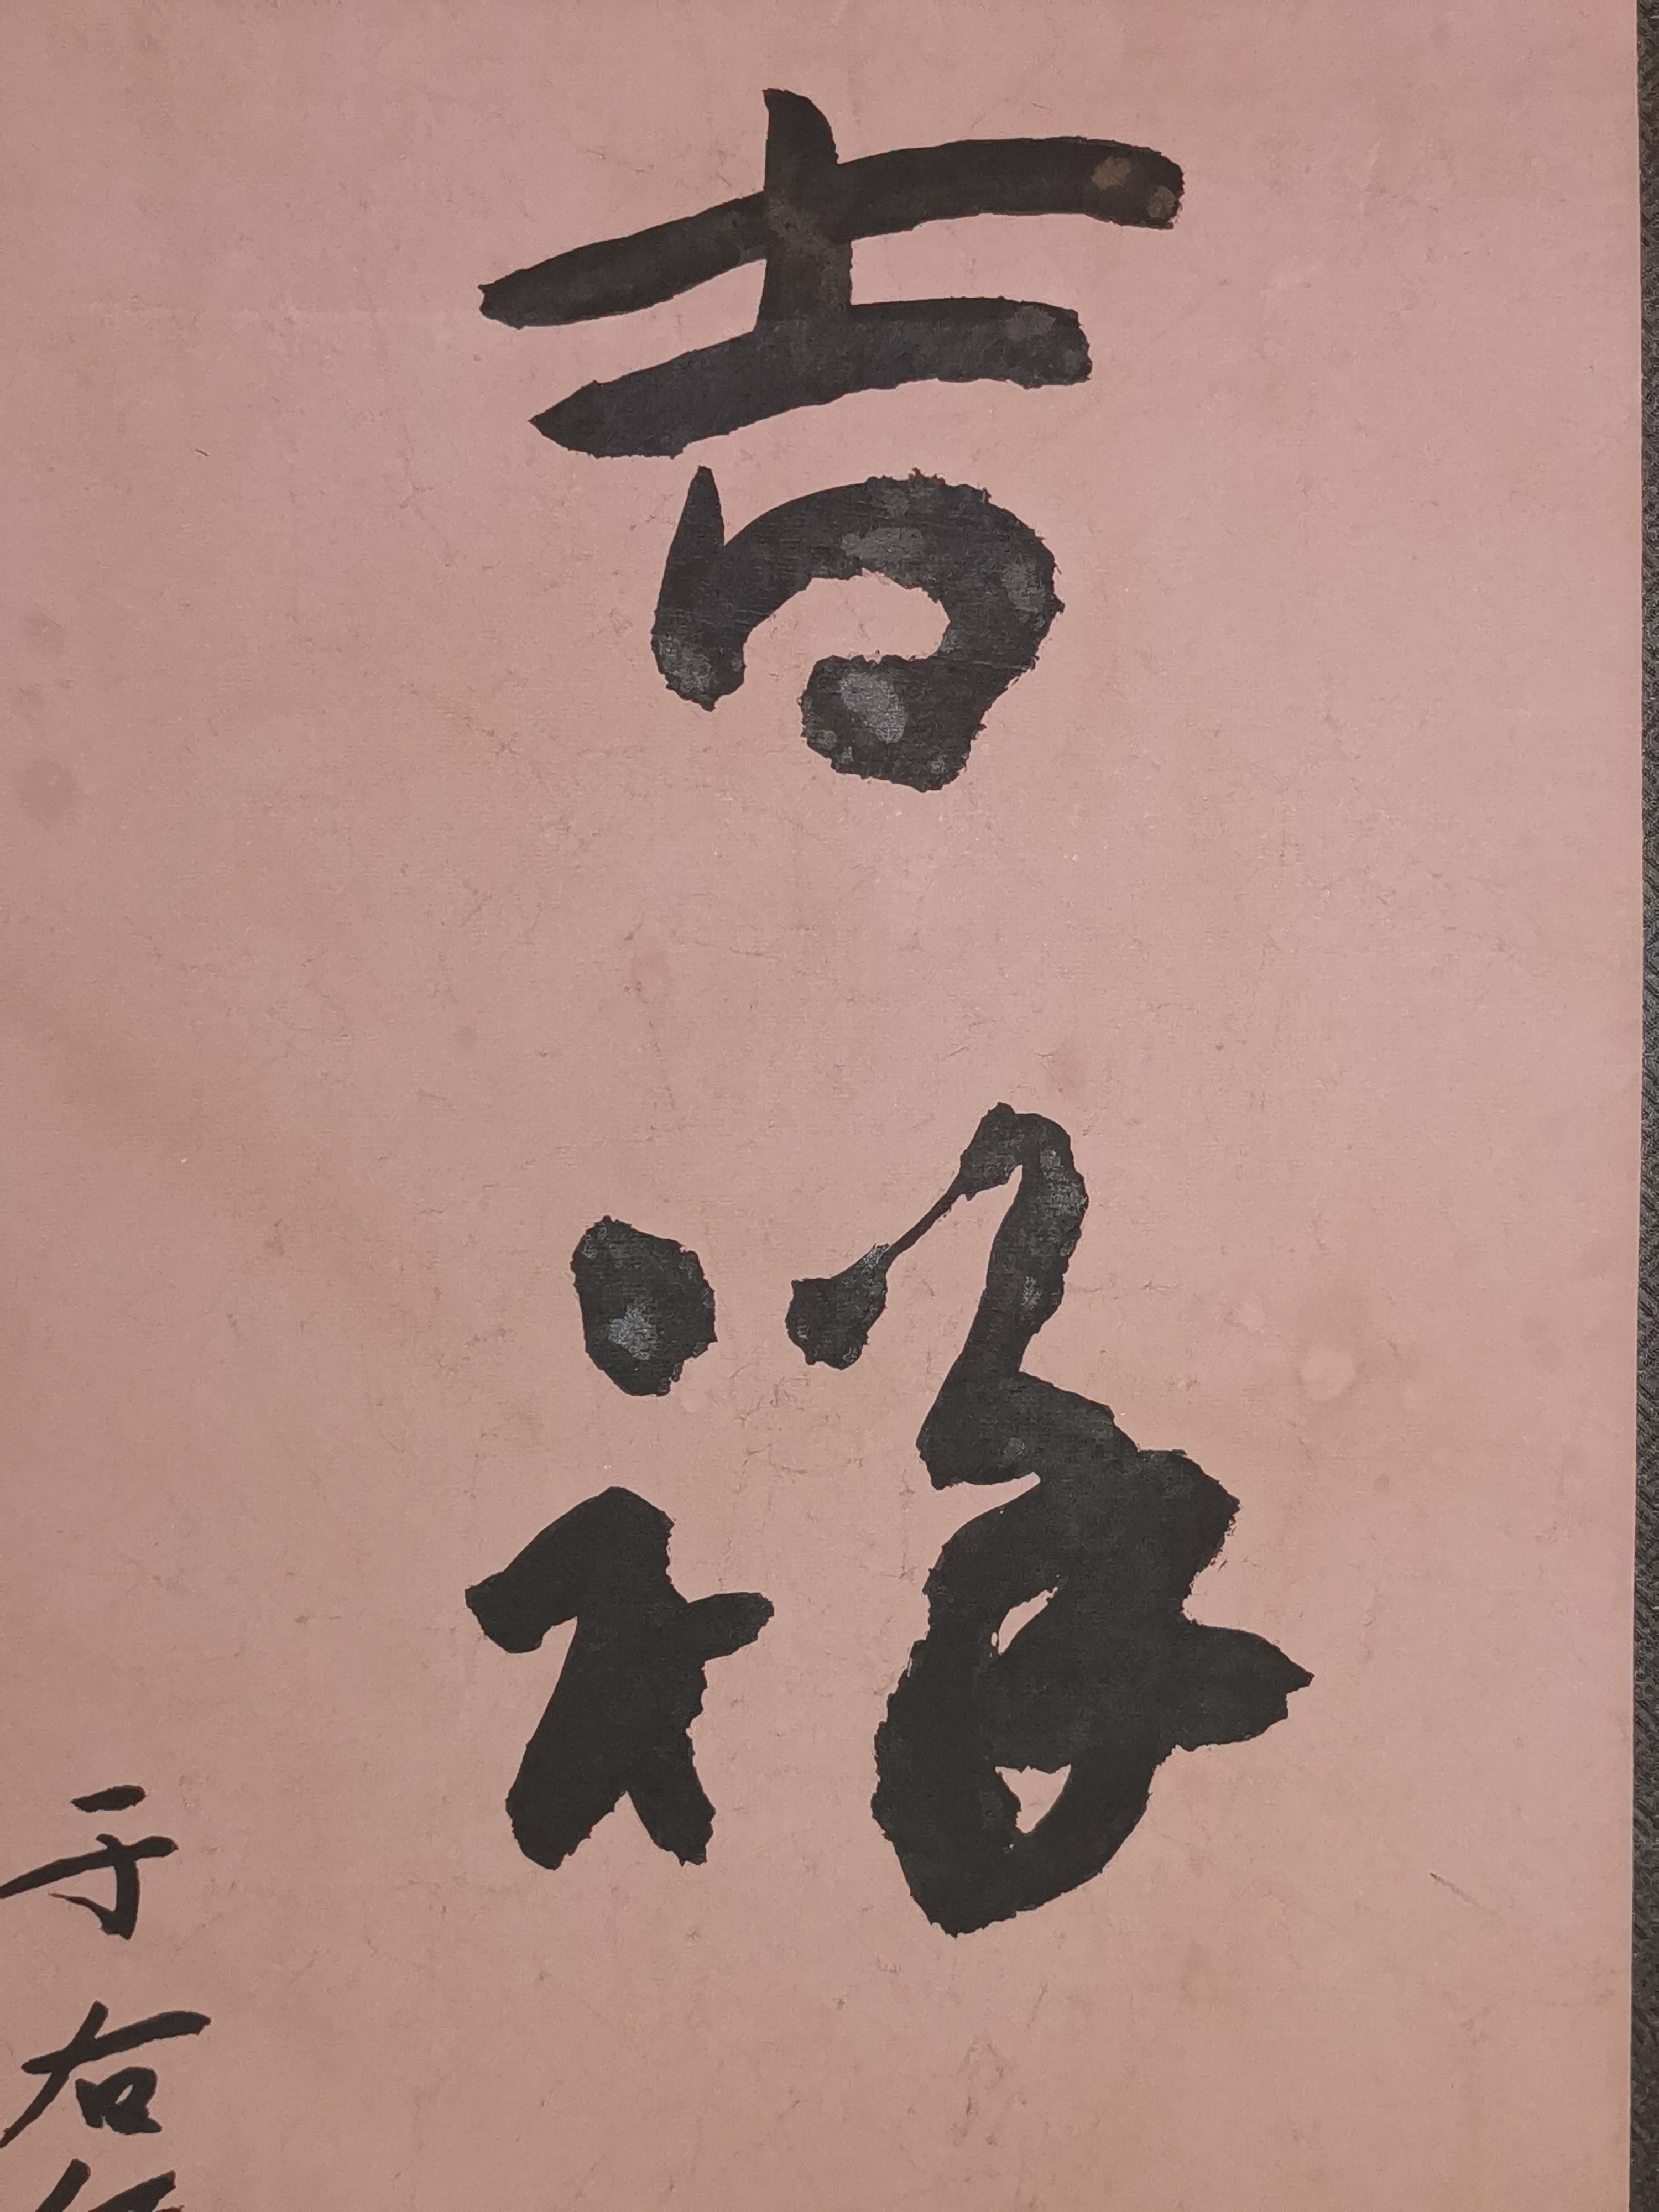 吉祥
于右